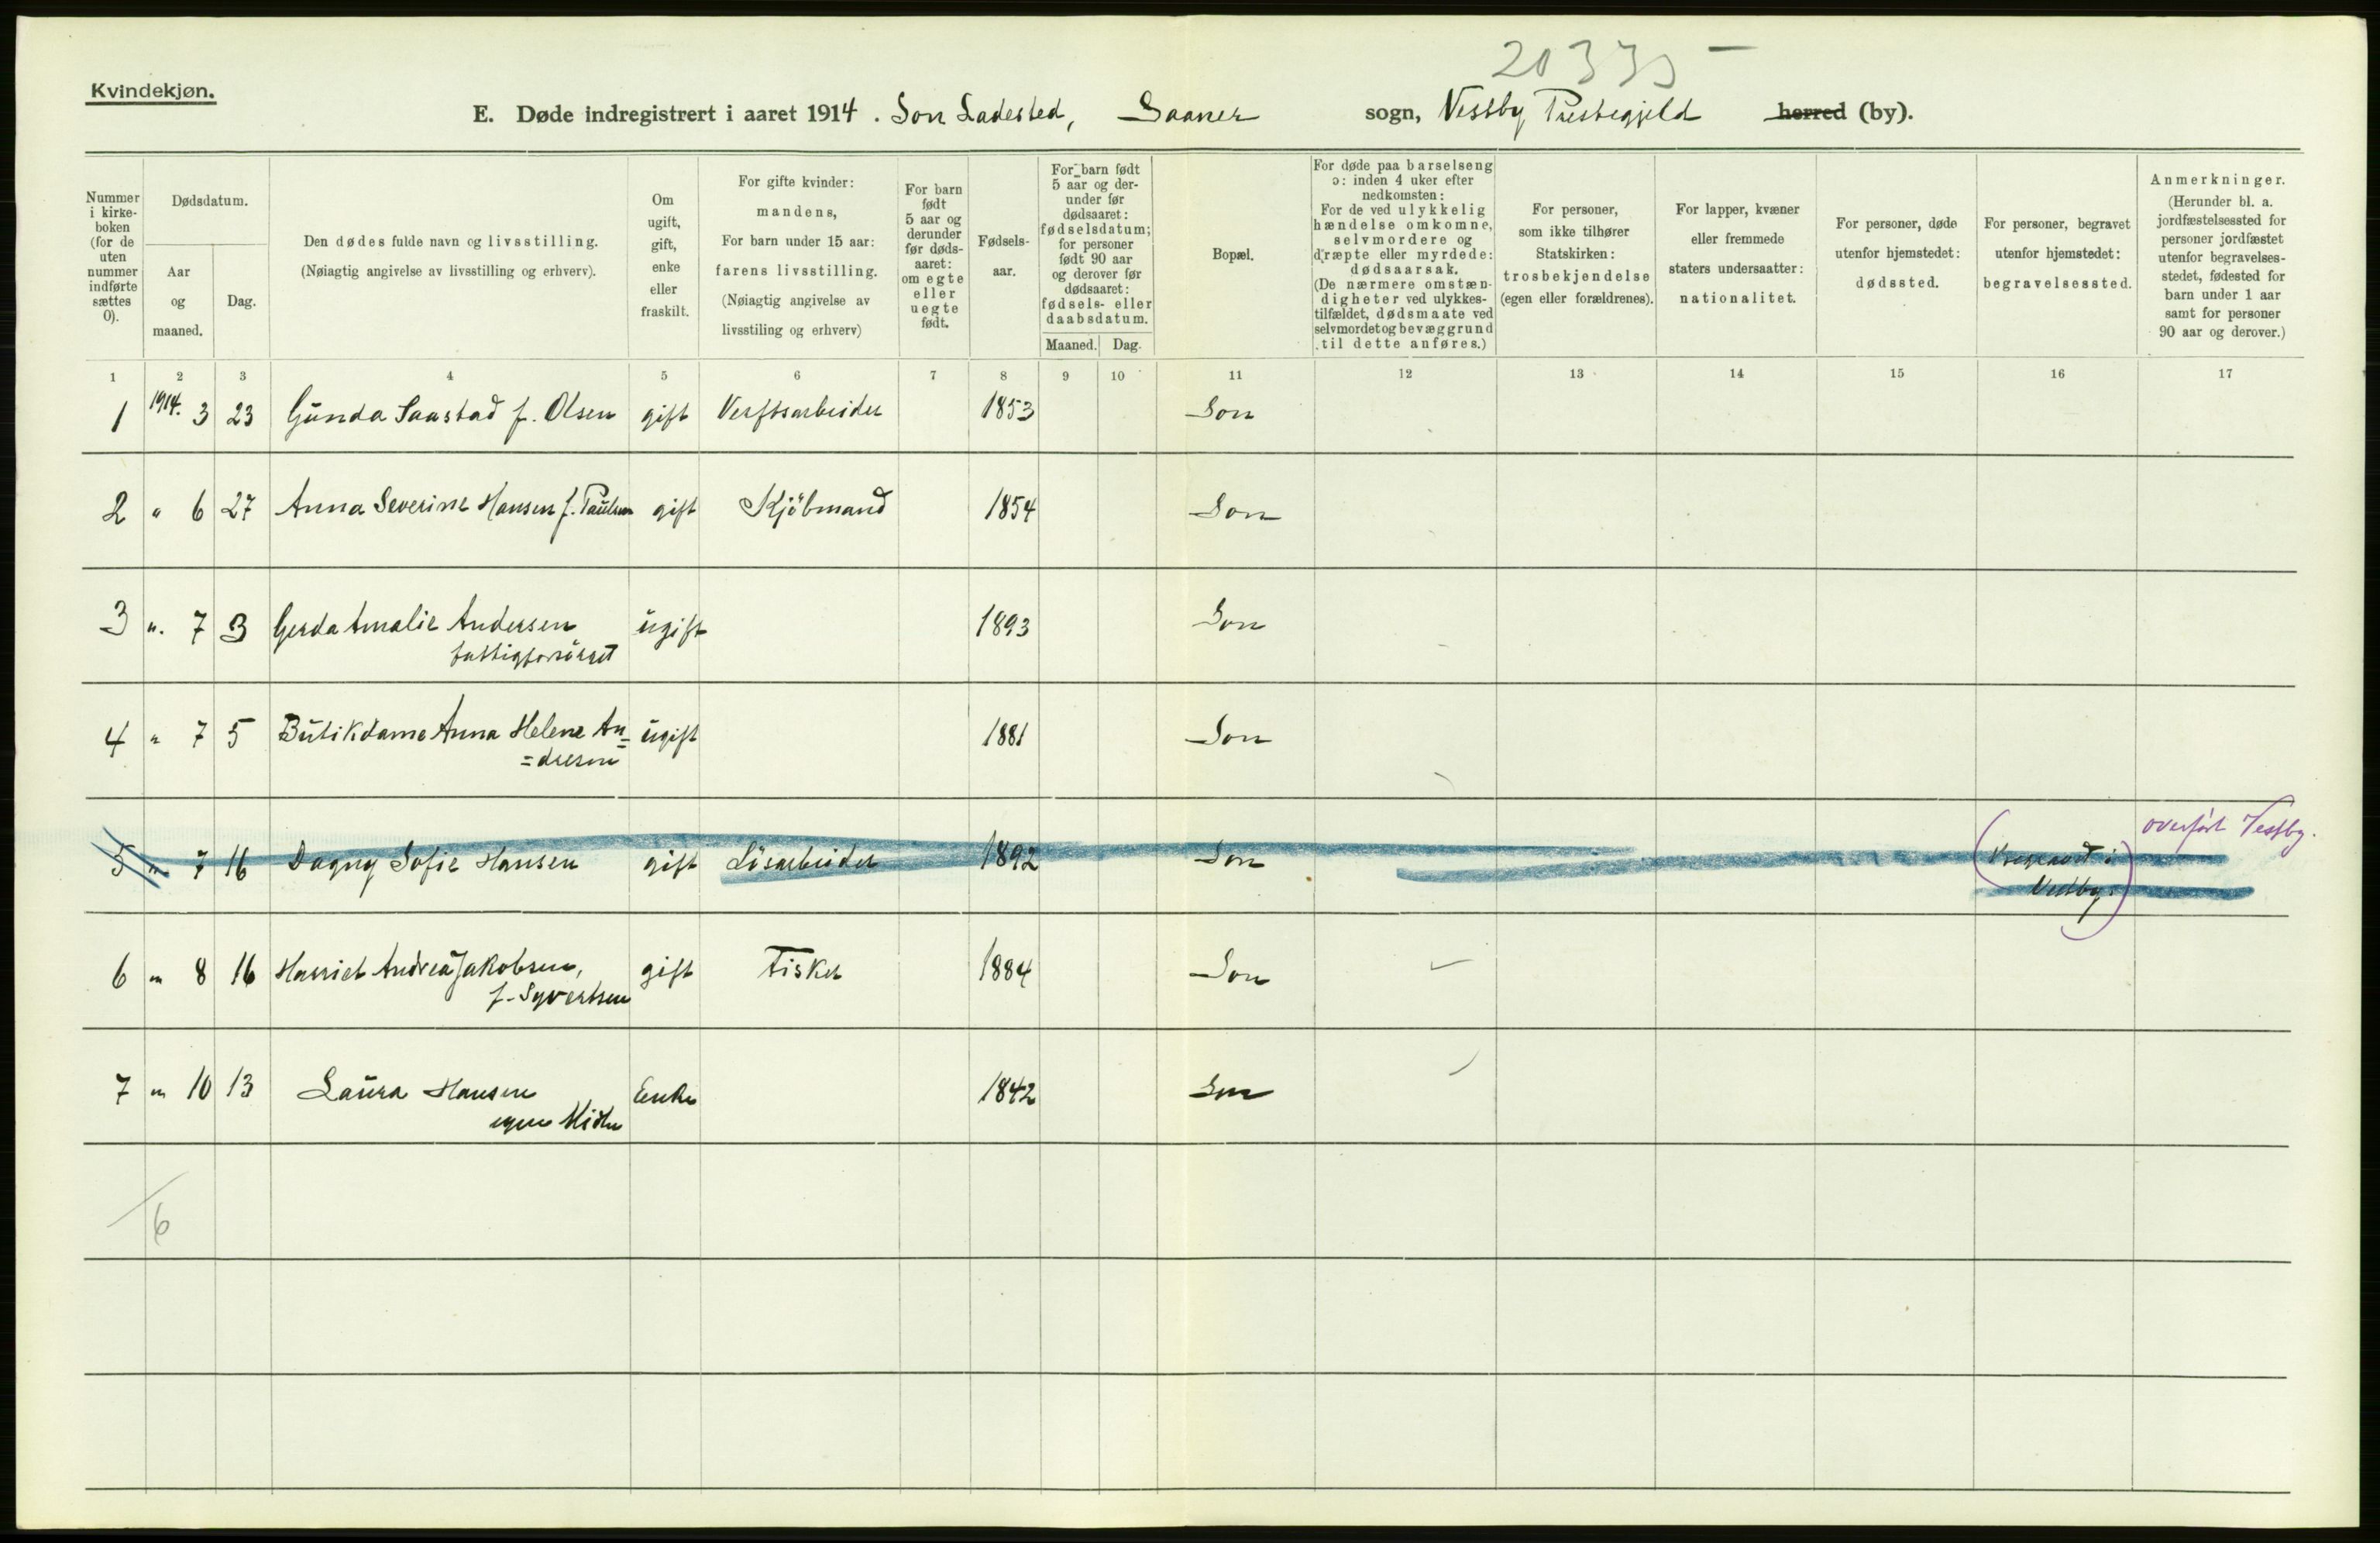 20335 –
Kvindekjøn.
E. Døde indregistrert i aaret 1914. Son Ladested, Saaner sogn, Vestby Prestegjeld herred (by).
Nummer i kirke-boken (for de uten nummer indførte sættes 0).
Dødsdatum.
Aar og maaned.
Dag.
Den dødes fulde navn og livsstilling.
(Nøiagtig angivelse av livsstilling og erhverv).
Om ugift, gift, enke eller fraskilt.
For gifte kvinder: mandens,
For barn under 15 aar: farens livsstilling.
(Nøiagtig angivelse av livsstiling og erhverv)
For barn født 5 aar og derunder før døds-aaret: om egte eller uegte født.
Fødsels-aar.
For barn født 5 aar og der-under før dødsaaret: fødselsdatum; for personer født 90 aar og derover før dødsaaret: fødsels- eller daabsdatum.
Maaned. Dag.
Bopæl.
For døde paa barselseng ɔ: inden 4 uker efter nedkomsten:
For de ved ulykkelig hændelse omkomne, selvmordere og dræpte eller myrdede: dødsaarsak.
(De nærmere omstæn-digheter ved ulykkes-tilfældet, dødsmaate ved selvmordet og bevæggrund til dette anføres.)
For personer, som ikke tilhører Statskirken: trosbekjendelse (egen eller forældrenes).
For lapper, kvæner eller fremmede staters undersaatter: nationalitet.
For personer, døde utenfor hjemstedet: dødssted.
For personer, begravet utenfor hjemstedet: begravelsessted.
Anmerkninger.
(Herunder bl. a. jordfæstelsessted for personer jordfæstet utenfor begravelses-stedet, fødested for barn under 1 aar samt for personer 90 aar og derover.)
1 2 3 4 5 6 7 8 9 10 11 12 13 14 15 16 17
1 1914. 3 23 Gunda Saastad f. Olsen gift Verftsarbeider 1853 Son
2 " 6 27 Anna Severine Hansen f. Paulsen gift Kjöbmand 1854 Son
3 ". 7 3 Gerda Amalie Andersen ugift 1893 Son
fattigforsörget
4 " 7 5 Butikdame Anna Helene An= ugift 1881 Son
=dresen
overfört Vestby.
5 " 7 16 Dagny Sofie Hansen gift Lösarbeider 1892 Son (Begravet i
Vestby.)
6 " 8 16 Harriet Andrea Jakobsen, gift Fisker 1884 Son
f. Syvertsen
7 " 10 13 Laura Hansen Enke 1842 Son
egne Midler
6